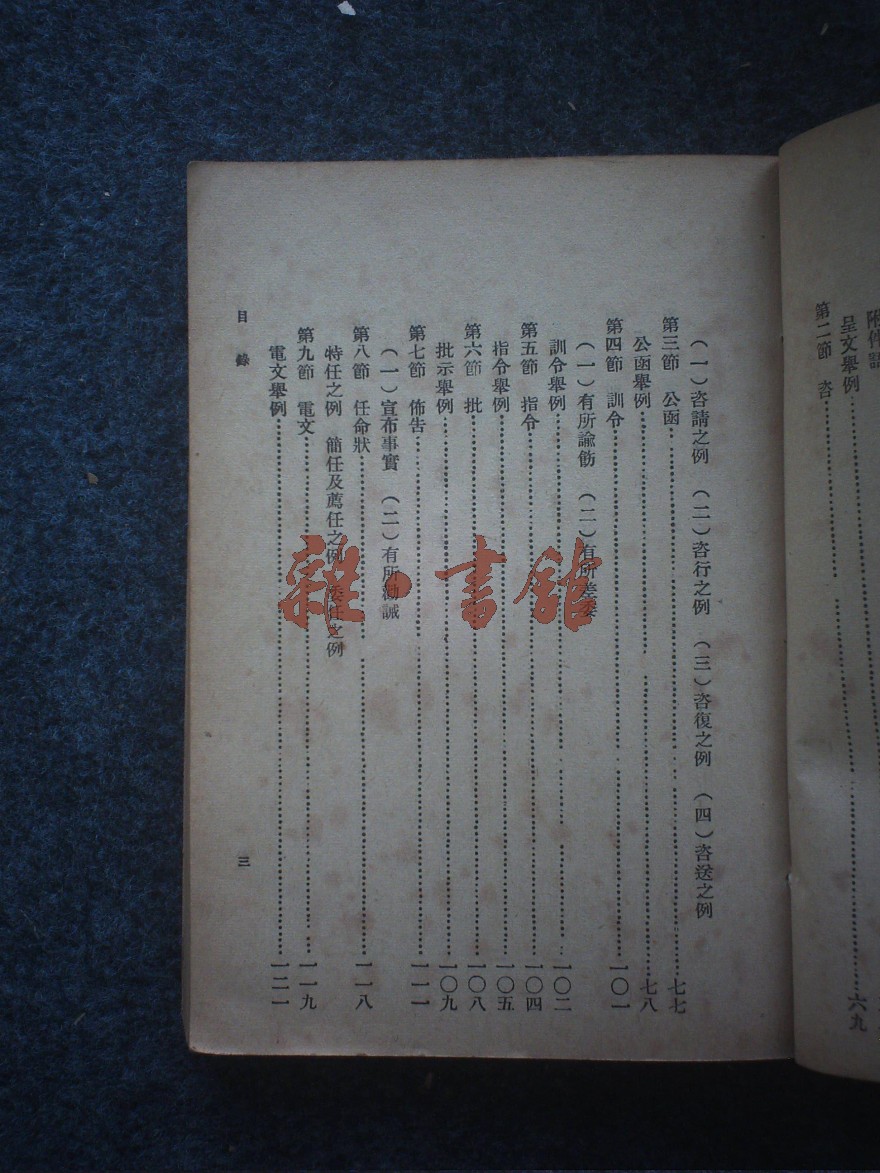 附件請
呈文舉例……六九
第二節　咨……
（一）咨請之例　（二）咨行之例　（三）咨復之例　（四）咨送之例
第三節　公函……七七
公函舉例……七八
第四節　訓令……一〇一
（一）有所諭飭　（二）有所差委
訓令舉例……一〇二
第五節　指令……一〇四
指令舉例……一〇五
第六節　批……一〇八
批示舉例……一〇九
第七節　佈告……一一一
（一）宣布事實　（二）有所勸誡
第八節　任命狀……一一八
特任之例　簡任及薦任之例　委任之例
第九節　電文……一一九
電文舉例……一二一
目錄
三
雜·書館